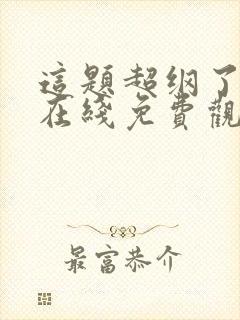 這題超纲了
在綫免費觀
最富恭介